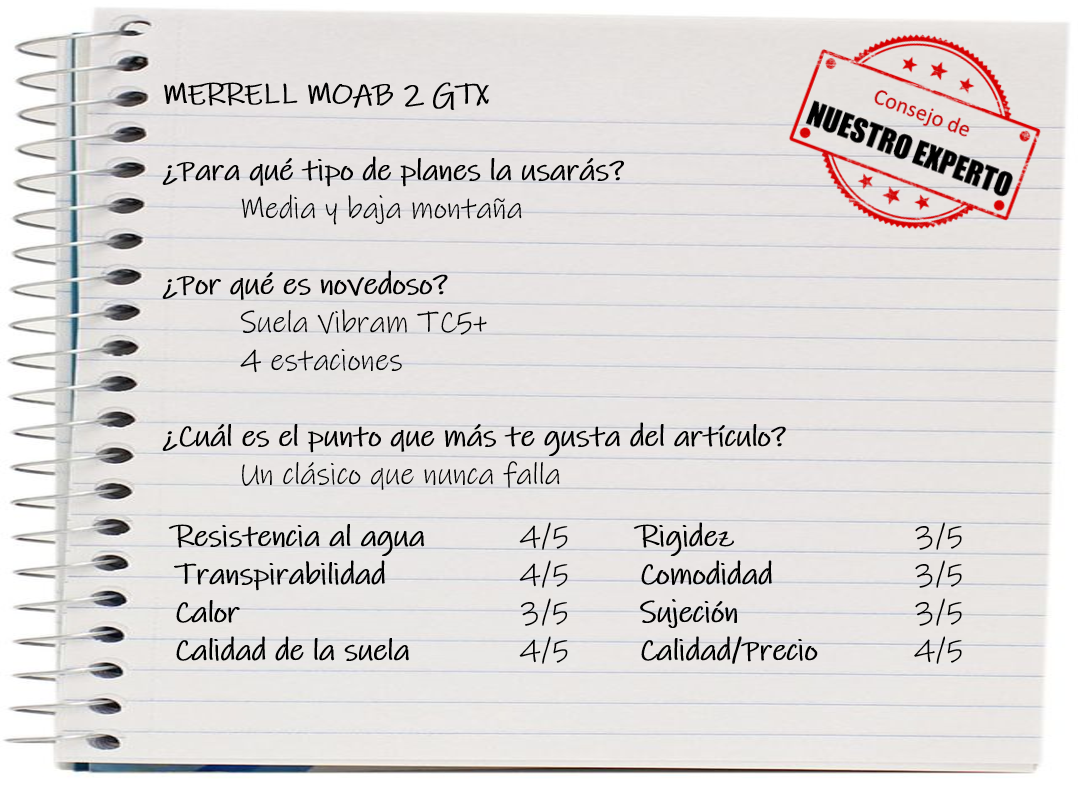 MERRELL MOAB 2 GTX
Consejo de
NUESTRO EXPERTO
¿Para qué tipo de planes la usarás?
Media y baja montaña
¿Por qué es novedoso?
Suela Vibram TC5+
4 estaciones
¿Cuál es el punto que más te gusta del artículo?
Un clásico que nunca falla
Resistencia al agua 4/5 Rigidez 3/5
Transpirabilidad 4/5 Comodidad 3/5
Calor 3/5 Sujeción 3/5
Calidad de la suela 4/5 Calidad/Precio 4/5